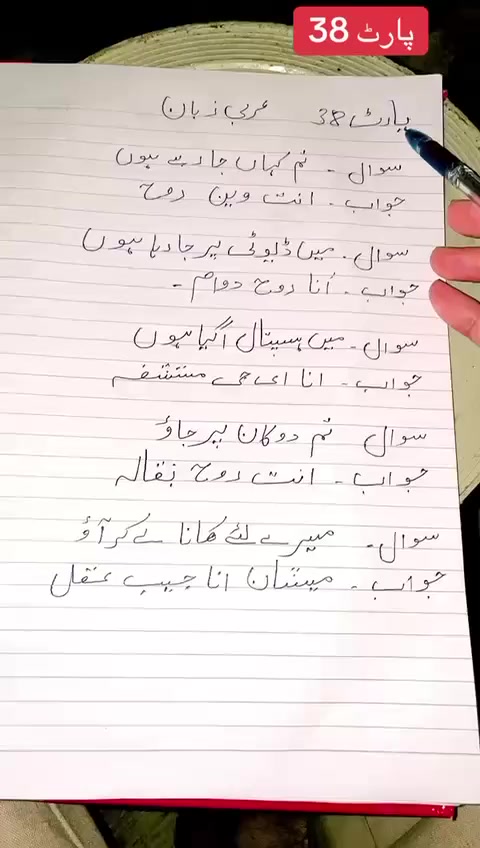 پارٹ 38
پارٹ 38 عربی زبان
سوال - تم کہاں جا رہے ہوں
جواب - انت وین روح
سوال - میں ڈیوٹی پر جا رہا ہوں
جواب - اَنا روح دوام -
سوال - میں ہسپتال آگیا ہوں
جواب - انا ای جی مستشفہ
سوال تم دوکان پر جاؤ
جواب - انت روح بقالہ
سوال - میرے لئے کھانا لے کر آؤ
جواب - میشان انا جیب